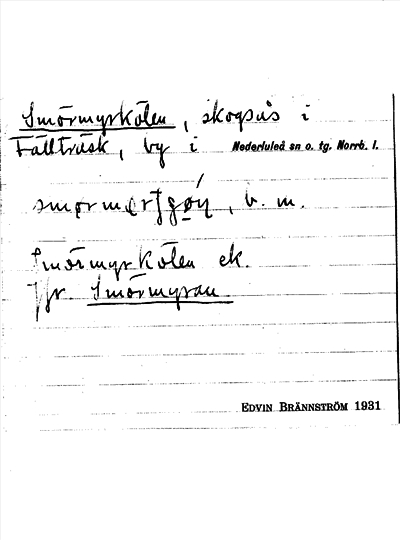 Smörmyrkölen, skogsås i
Fällträsk, by i Nederluleå sn o. tg. Norrb. l.
b. m.
Smörmyrkölen ek.
Jfr. Smörmyran
EDVIN BRÄNNSTRÖM 1931